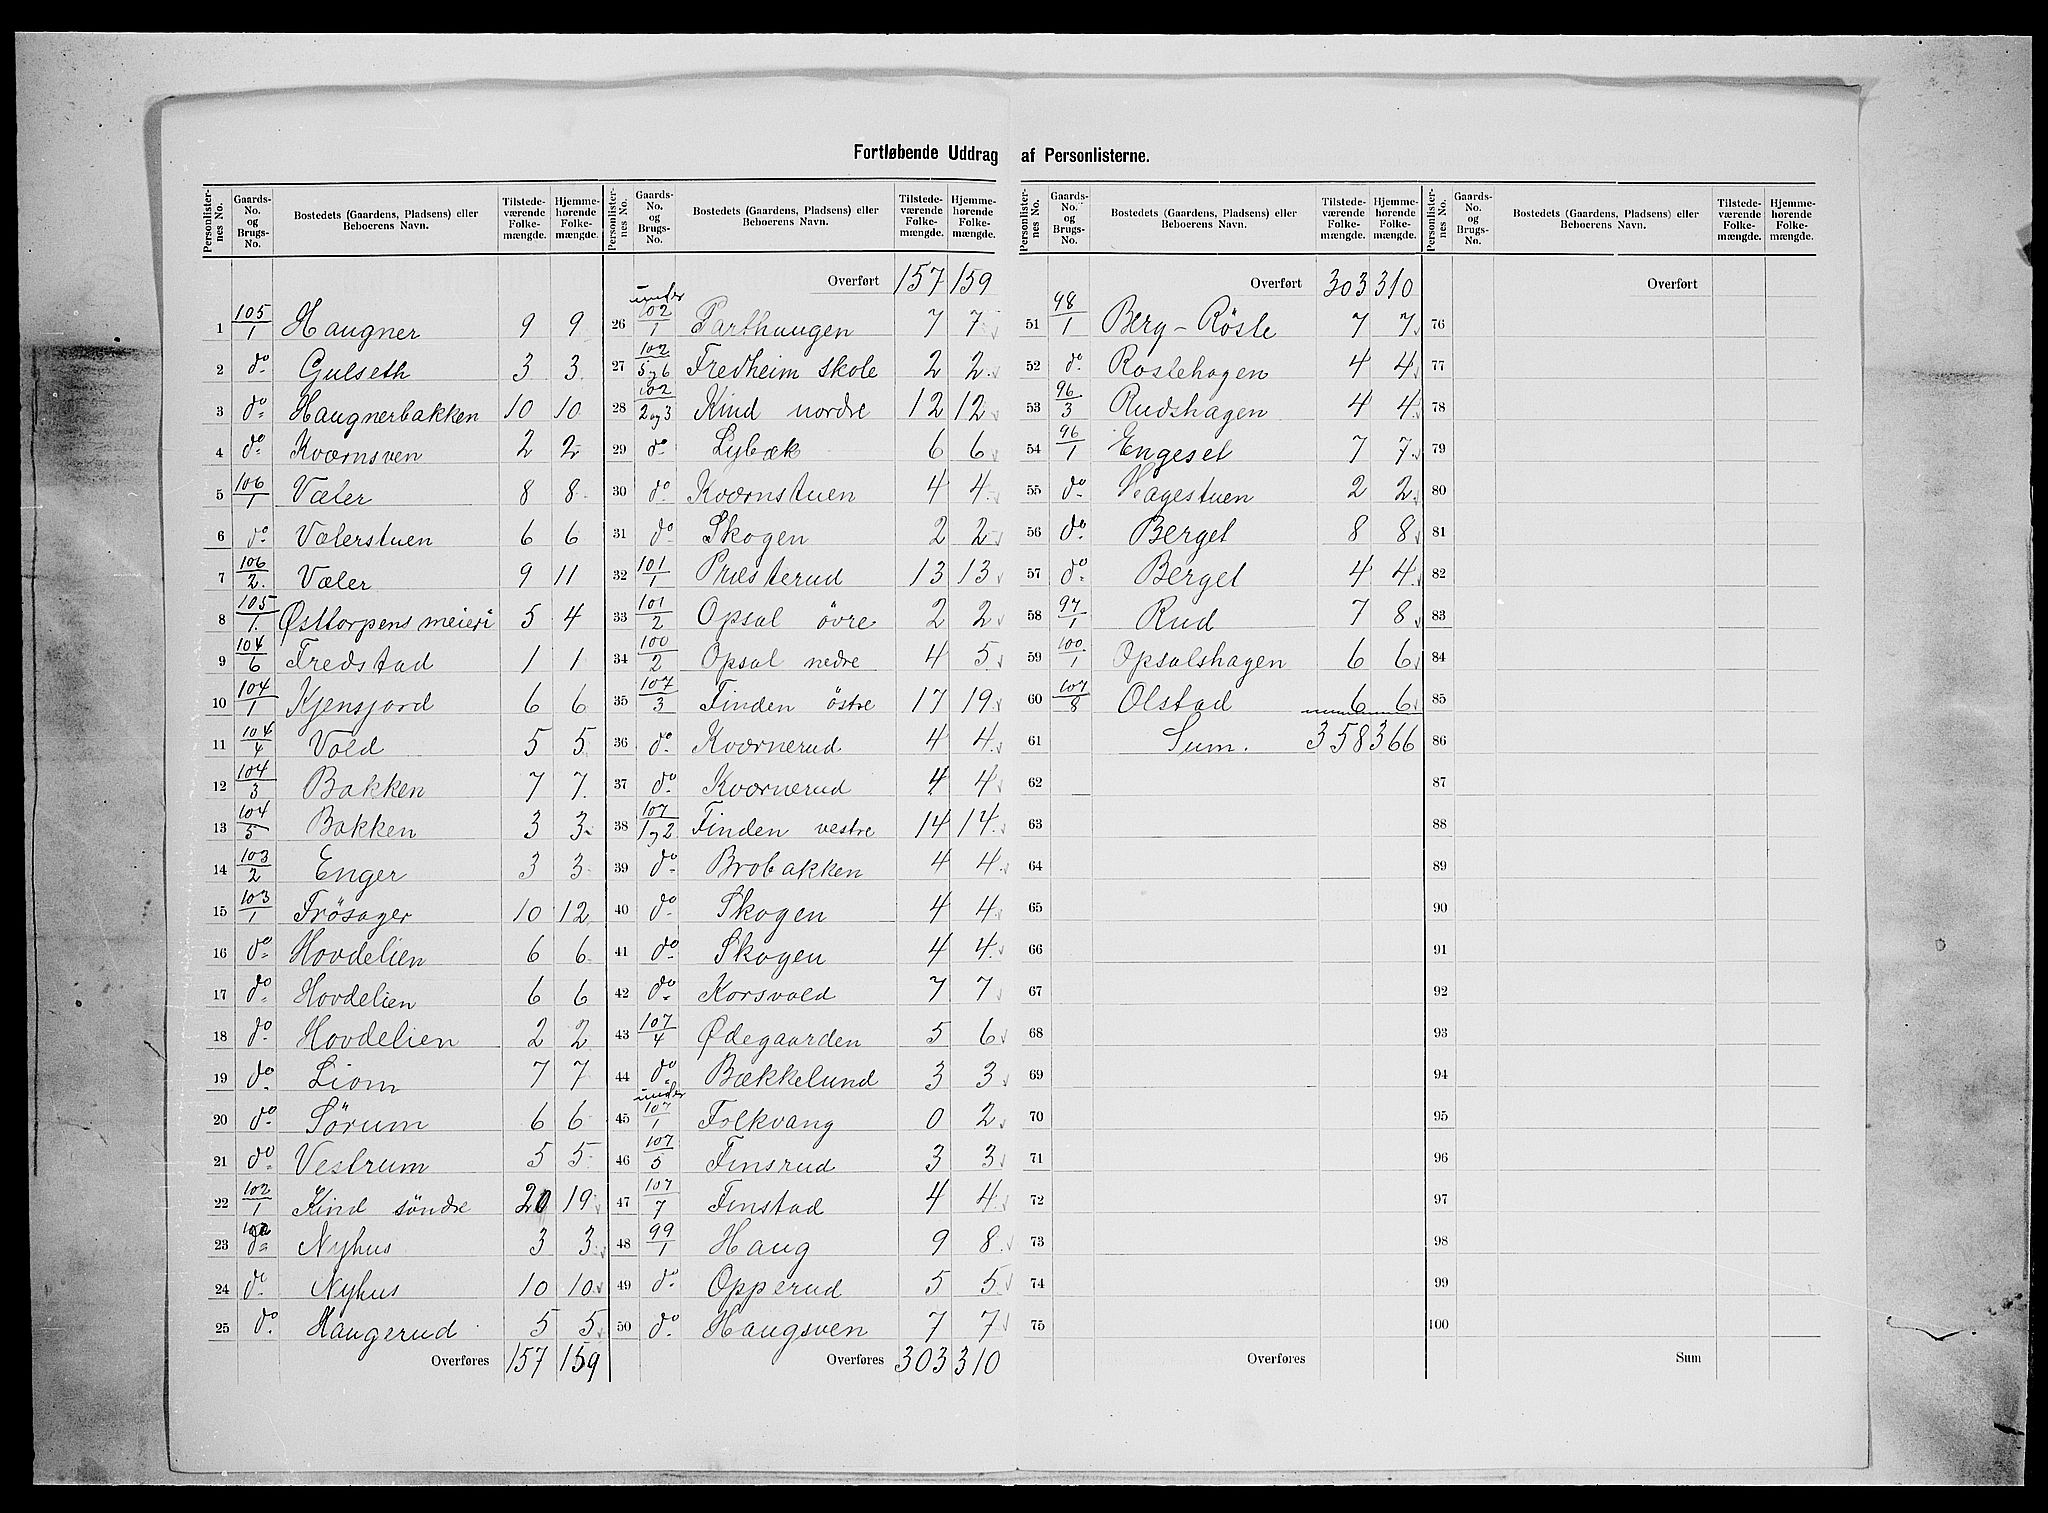 Fortløbende Uddrag af Personlisterne.
Personlister- nes No. | Gaards- No. og Brugs- No. | Bostedets (Gaardens, Pladsens) eller Beboerens Navn. | Tilstede- værende Folke- mængde. | Hjemme- hørende Folke- mængde.
1 105/1 Haugner 9 9
2 do Gulseth 3 3
3 do Haugnerbakken 10 10
4 do Kværnsven 2 2
5 106/1 Væler 8 8
6 do Vælerstuen 6 6
7 106/2 Væler 9 11
8 105/1 Østtorpens meieri 5 4
9 104/6 Fredstad 1 1
10 104/1 Kjensjord 6 6
11 104/4 Vold 5 5
12 104/3 Bakken 7 7
13 104/5 Bakken 3 3
14 103/2 Enger 3 3
15 103/1 Frösager 10 12
16 do Hovdelien 6 6
17 do Hovdelien 6 6
18 do Hovdelien 2 2
19 do Liom 7 7
20 do Sörum 6 6
21 do Vestrum 5 5
22 102/1 Kind söndre 20 19
23 do Nyhus 3 3
24 do Nyhus 10 10
25 do Haugerud 5 5
Overføres 157 159
Personlister- nes No. | Gaards- No. og Brugs- No. | Bostedets (Gaardens, Pladsens) eller Beboerens Navn. | Tilstede- værende Folke- mængde. | Hjemme- hørende Folke- mængde.
Overført 157 159
26 under 102/1 Parthaugen 7 7
27 102/5 og 6 Fredheim skole 2 2
28 102/2 og 3 Kind nordre 12 12
29 do Lybæk 6 6
30 do Kværnstuen 4 4
31 do Skogen 2 2
32 101/1 Præsterud 13 13
33 101/2 Opsal övre 2 2
34 100/2 Opsal nedre 4 5
35 107/3 Finden östre 17 19
36 do Kværnerud 4 4
37 do Kværnerud 4 4
38 107/1 og 2 Finden vestre 14 14
39 do Brobakken 4 4
40 do Skogen 4 4
41 do Skogen 4 4
42 do Korsvold 7 7
43 107/4 Ødegaarden 5 6
44 do Bækkelund 3 3
45 under 107/1 Folkvang 0 2
46 107/5 Finsrud 3 3
47 107/7 Finstad 4 4
48 99/1 Haug 9 8
49 do Opperud 5 5
50 do Haugsven 7 7
Overføres 303 310
Personlister- nes No. | Gaards- No. og Brugs- No. | Bostedets (Gaardens, Pladsens) eller Beboerens Navn. | Tilstede- værende Folke- mængde. | Hjemme- hørende Folke- mængde.
Overført 303 310
51 98/1 Berg-Rösle 7 7
52 do Roslehagen 4 4
53 96/3 Rudshagen 4 4
54 96/1 Engeset 7 7
55 do Hagestuen 2 2
56 do Berget 8 8
57 do Berget 4 4
58 97/1 Rud 7 8
59 100/1 Opsalshagen 6 6
60 107/8 Olstad 6 6
61 Sum. 358 366
62
63
64
65
66
67
68
69
70
71
72
73
74
75
Overføres
Personlister- nes No. | Gaards- No. og Brugs- No. | Bostedets (Gaardens, Pladsens) eller Beboerens Navn. | Tilstede- værende Folke- mængde. | Hjemme- hørende Folke- mængde.
Overført
76
77
78
79
80
81
82
83
84
85
86
87
88
89
90
91
92
93
94
95
96
97
98
99
100
Sum